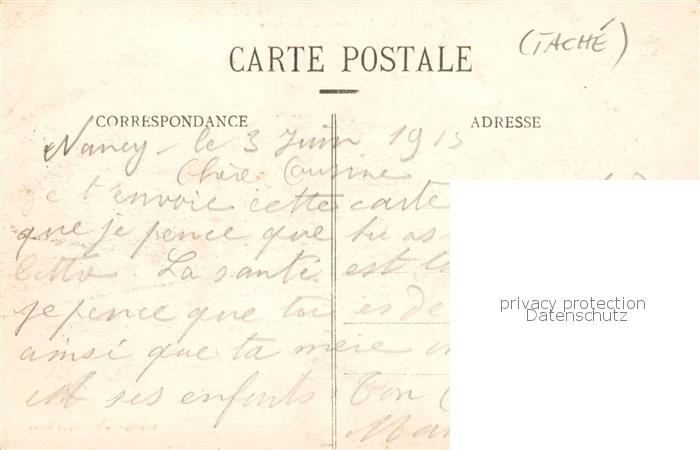 (TACHÉ)
CARTE POSTALE
CORRESPONDANCE
ADRESSE
Nancy - le 3 Juin 1915
Chère Cousine
je t'envoie cette carte
que je pence que tu as
La santé est
je pence que tu es de
ainsi que ta mère
et ses enfants Ton
privacy protection
Datenschutz